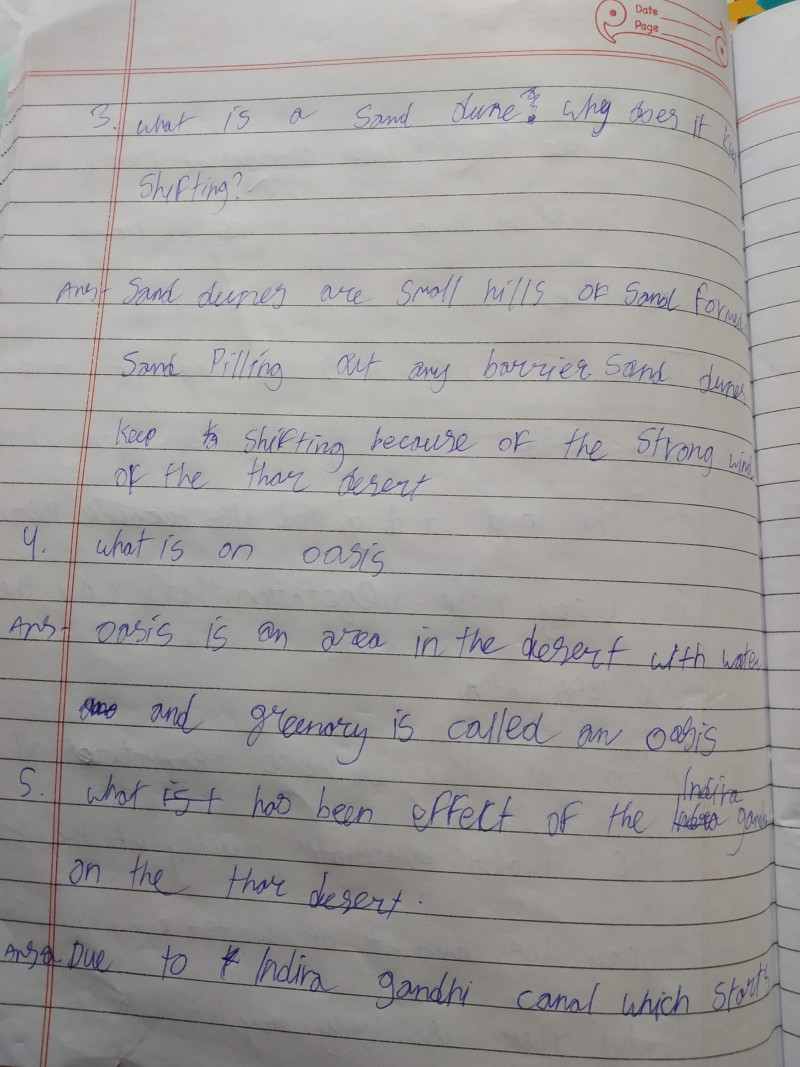 Date
Page
3. what is a Sand dune? why does it keep
Shifting?
Ans- Sand dunes are small hills of Sand formed
Sand Pilling at any barrier. Sand dunes
Keep shifting because of the Strong wind
of the thar desert
4. what is an oasis
Ans- oasis is an area in the desert with water
and greenary is called an oasis
5. what is t has been effect of the Indira gandhi
on the thar desert.
Ans- Due to Indira gandhi canal which starts